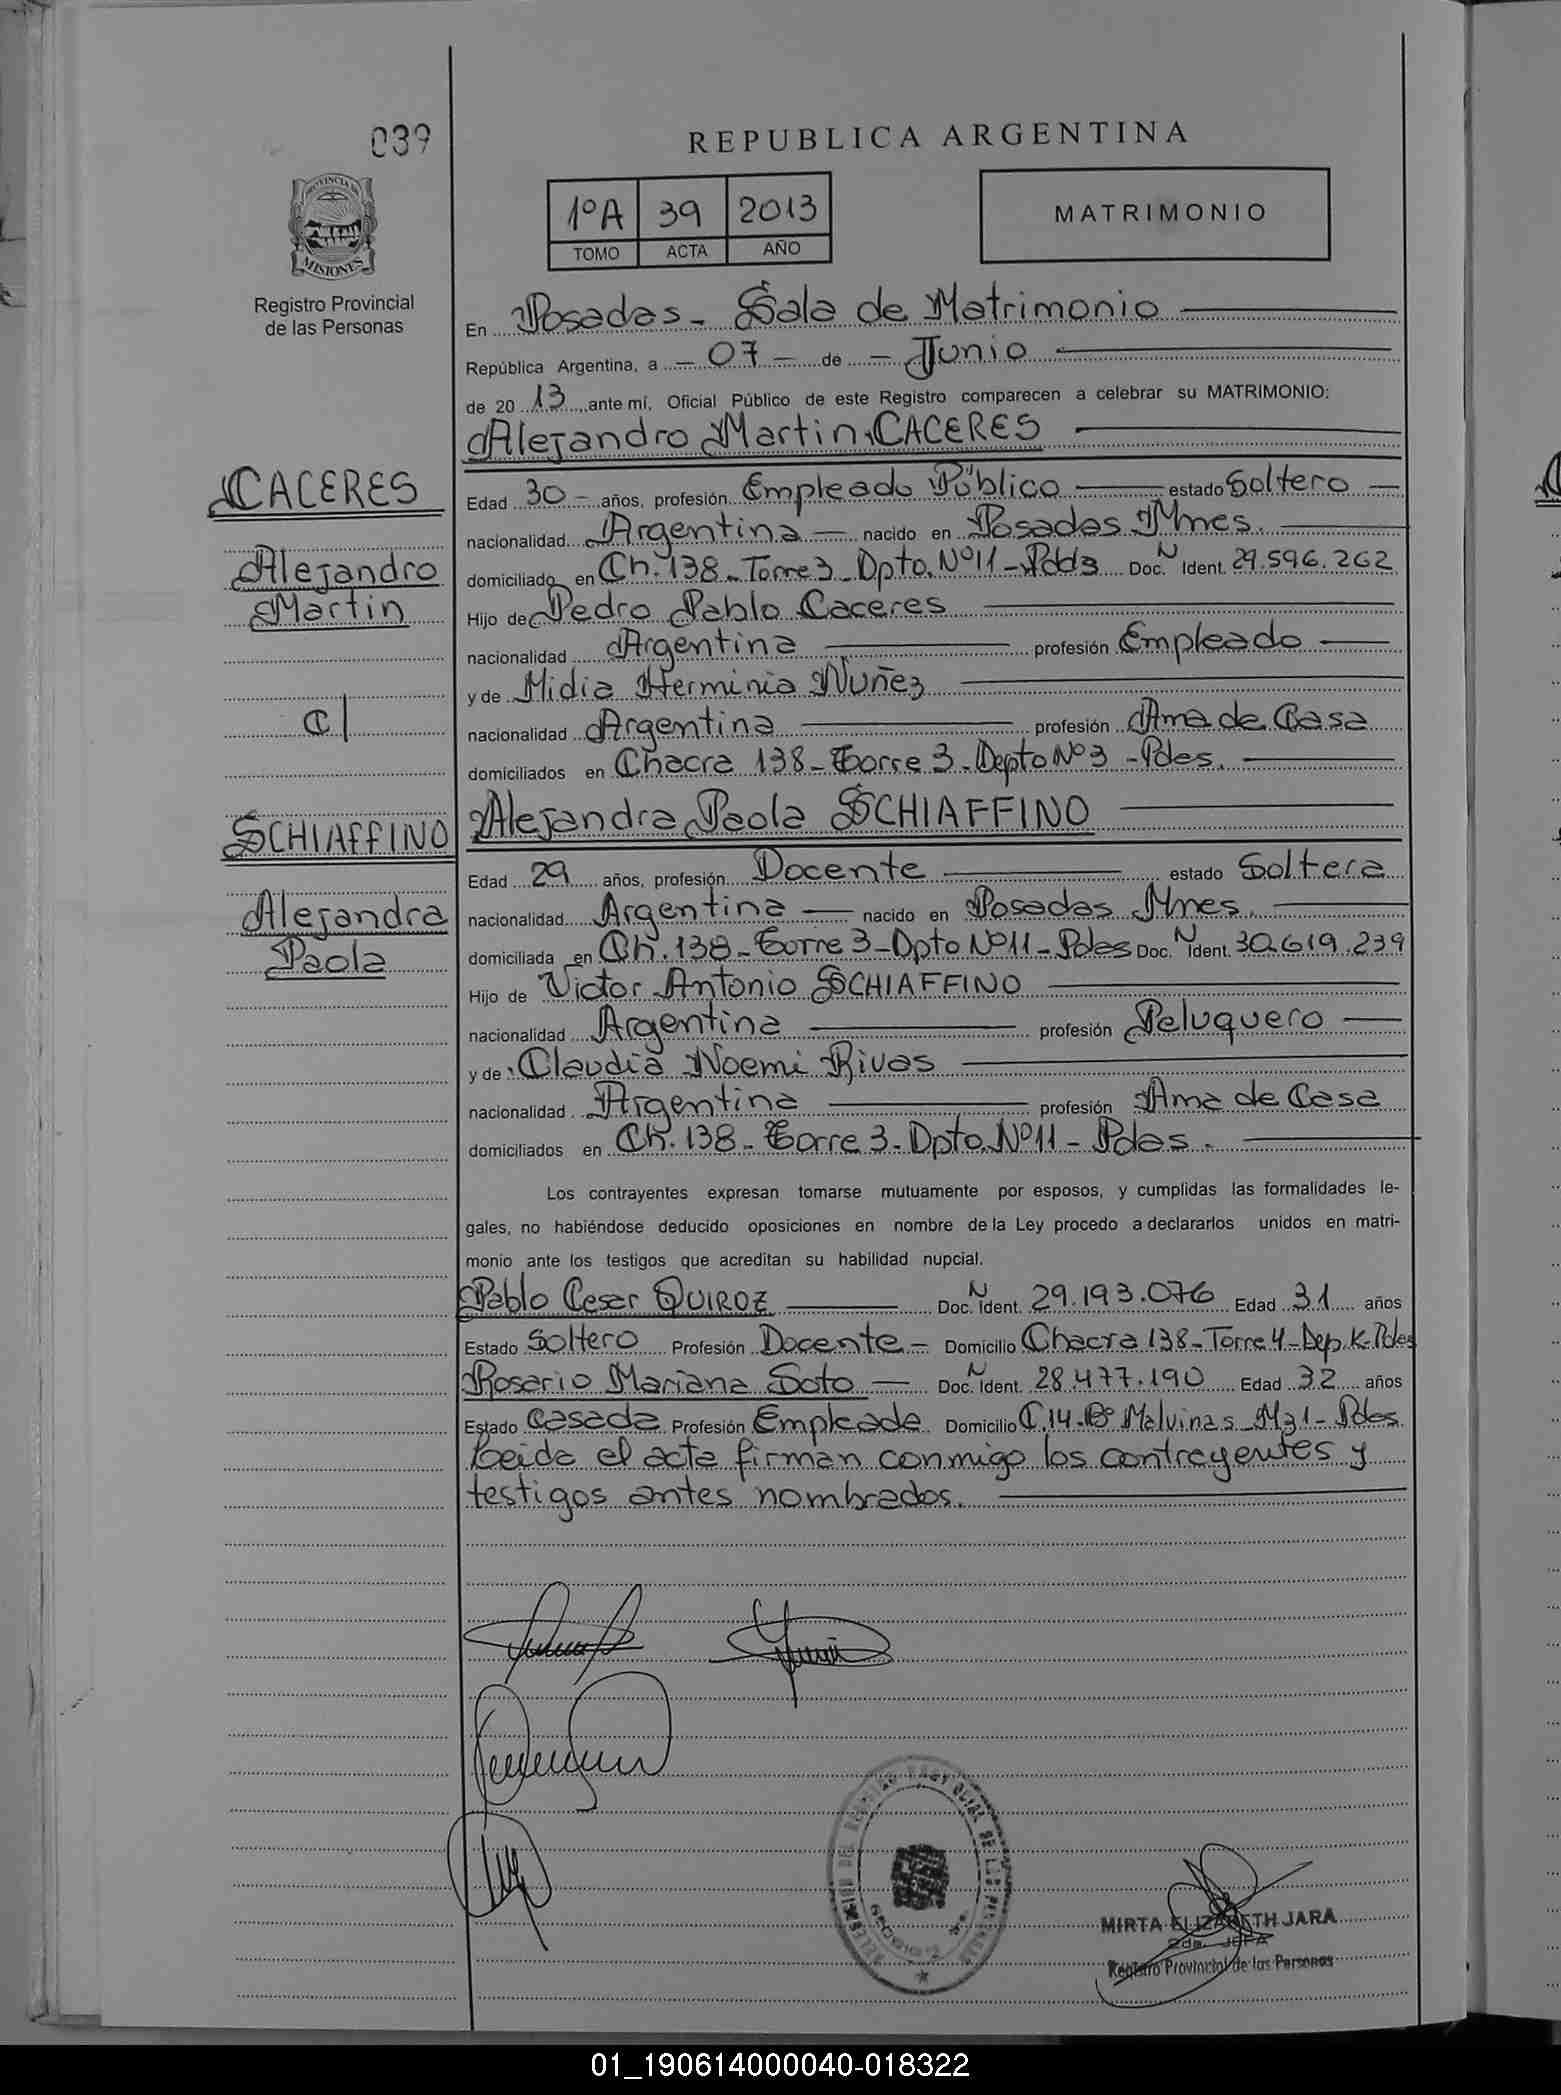 039
REPUBLICA ARGENTINA
PROVINCIA DE
MISIONES
Registro Provincial
de las Personas
1ºA 39 2013
TOMO ACTA AÑO
MATRIMONIO
En Posadas - Sala de Matrimonio
República Argentina, a - 07 - de - Junio
de 20 13 ante mí, Oficial Público de este Registro comparecen a celebrar su MATRIMONIO:
Alejandro Martin CACERES
CACERES
Alejandro
Martin
C/
Edad 30 - años, profesión Empleado Público estado Soltero
nacionalidad Argentina nacido en Posadas Mnes.
domiciliado en Ch. 138 - Torre 3 - Dpto. Nº 11 - Pdas Doc. N Ident. 29.596.262
Hijo de Pedro Pablo Caceres
nacionalidad Argentina profesión Empleado
y de Midia Herminia Nuñez
nacionalidad Argentina profesión Ama de Casa
domiciliados en Chacra 138 - Torre 3 - Depto Nº 3 - Pdas.
Alejandra Paola SCHIAFFINO
SCHIAFFINO
Alejandra
Paola
Edad 29 años, profesión Docente estado Soltera
nacionalidad Argentina nacido en Posadas Mnes.
domiciliada en Ch. 138 - Torre 3 - Dpto Nº 11 - Pdas Doc. N Ident. 30.619.239
Hijo de Victor Antonio SCHIAFFINO
nacionalidad Argentina profesión Peluquero
y de Claudia Noemi Rivas
nacionalidad Argentina profesión Ama de Casa
domiciliados en Ch. 138 - Torre 3 - Dpto. Nº 11 - Pdas.
Los contrayentes expresan tomarse mutuamente por esposos, y cumplidas las formalidades le-
gales, no habiéndose deducido oposiciones en nombre de la Ley procedo a declararlos unidos en matri-
monio ante los testigos que acreditan su habilidad nupcial.
Pablo Cesar QUIROZ Doc. N Ident. 29.193.076 Edad 31 años
Estado Soltero Profesión Docente - Domicilio Chacra 138 - Torre 4 - Dep. K - Pdas
Rosario Mariana Soto Doc. N Ident. 28.477.190 Edad 32 años
Estado Casada Profesión Empleada Domicilio C.14 - Bº Malvinas - Mz 1 - Pdas.
Leida el acta firman conmigo los contrayentes y
testigos antes nombrados.
MIRTA ELIZABETH JARA
2da. JEFA
Registro Provincial de las Personas
01_190614000040-018322